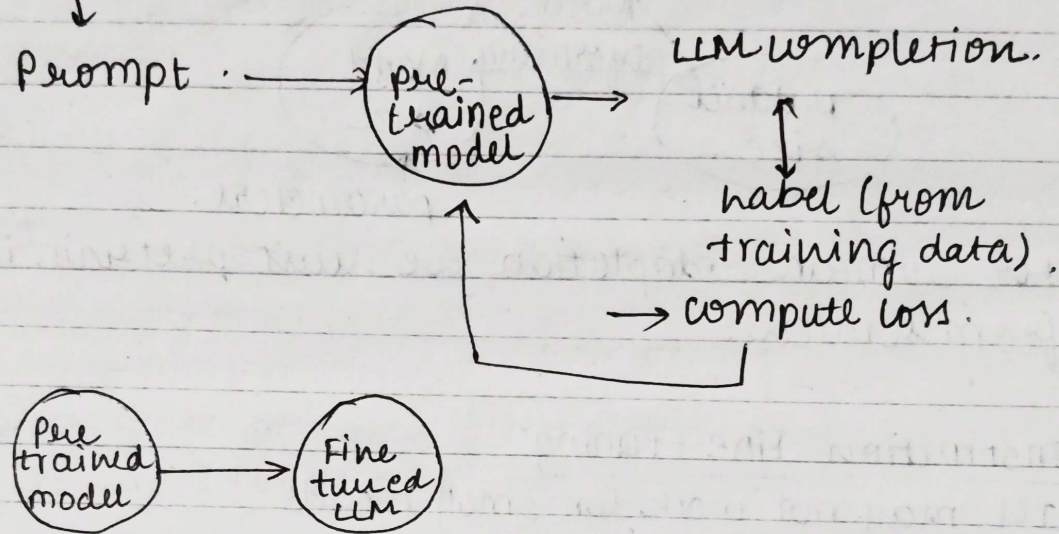 Prompt.
pre-
trained
model
LLM completion.
Label (from
training data).
compute loss.
Pre
trained
model
Fine
tuned
LLM